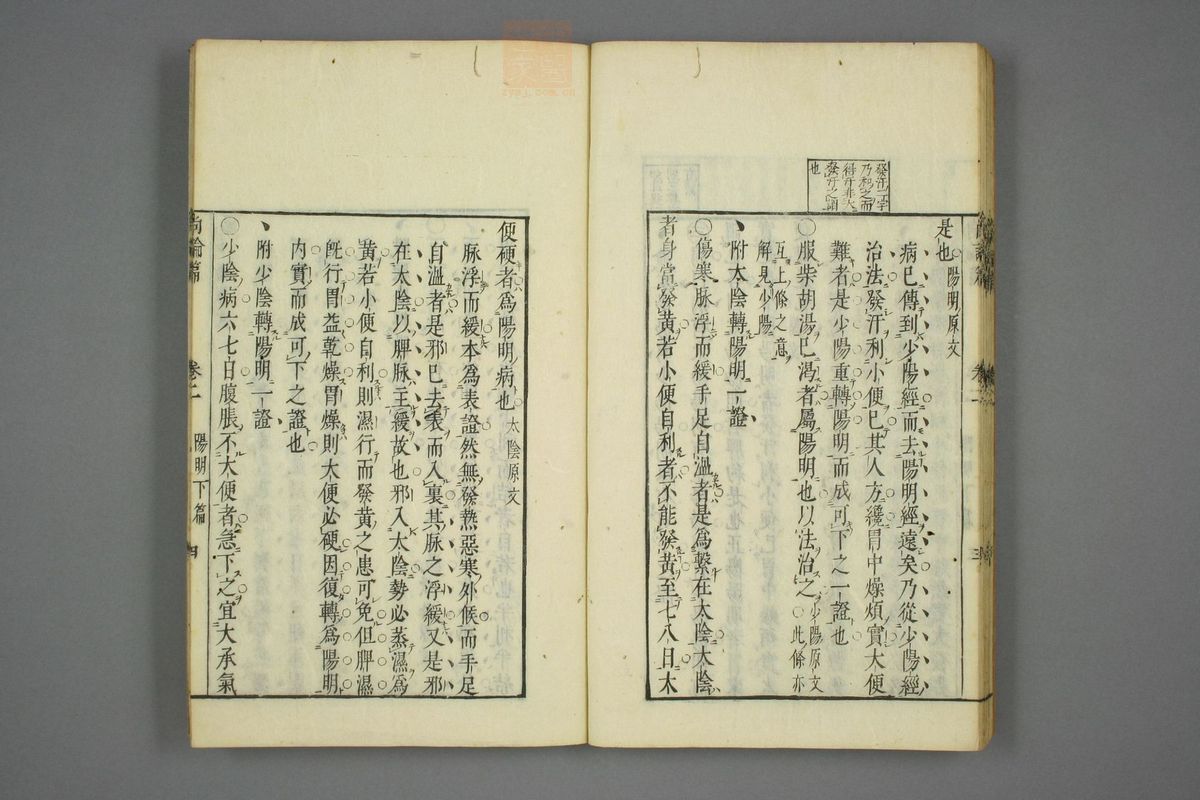 是也陽明原文
病已傳到少陽經而去陽明經遠矣乃從少陽經
治法發汗利小便已其人方纔胃中燥煩實大便
難者是少陽重轉陽明而成可下之一證也
服柴胡湯已渴者屬陽明也以法治之少陽原文此條亦
互上條之意
解見少陽
附太陰轉陽明一證
傷寒脉浮而緩手足自温者是爲繫在太陰太陰
者身當發黃若小便自利者不能發黃至七八日大
發汗二字
乃和之而
得汗非大
發汗之謂
也
尚論篇
卷二
三
便硬者爲陽明病也太陰原文
脉浮而緩本爲表證然無發熱惡寒外候而手足
自温者是邪已去表而入裏其脉之浮緩又是邪
在太陰以脾脉主緩故也邪入太陰勢必蒸濕爲
黃若小便自利則濕行而發黃之患可免但脾濕
旣行胃益乾燥胃燥則大便必硬因復轉爲陽明
内實而成可下之證也
附少陰轉陽明一證
少陰病六七日腹脹不大便者急下之宜大承氣
尚論篇
卷二
陽明下篇
四
zysj.com.cn